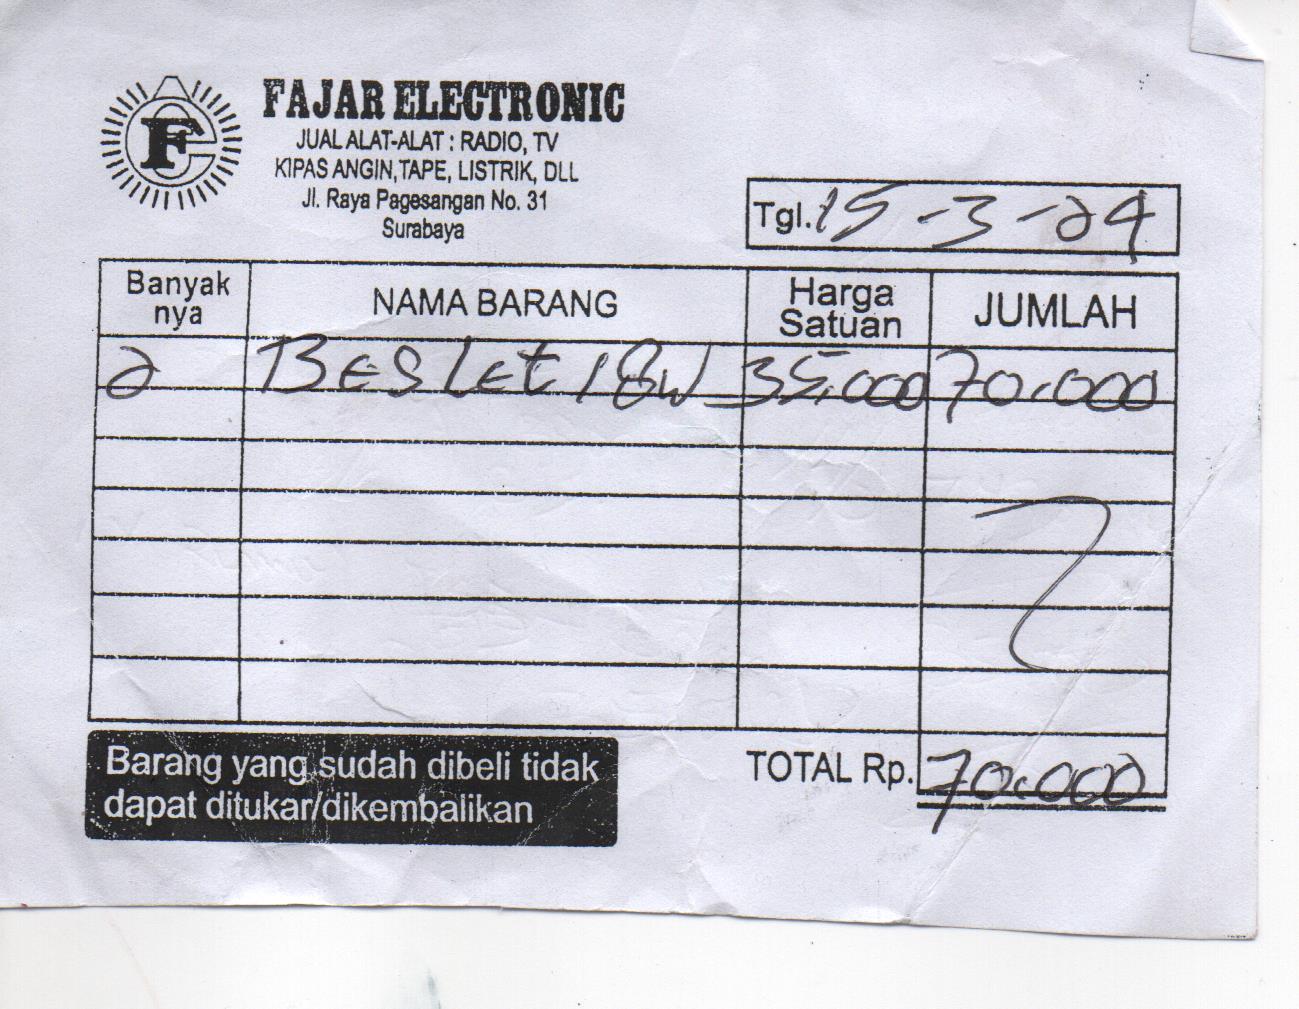 FAJAR ELECTRONIC
JUAL ALAT-ALAT : RADIO, TV
KIPAS ANGIN, TAPE, LISTRIK, DLL
Jl. Raya Pagesangan No. 31
Surabaya
Tgl. 15-3-24
Banyak nya NAMA BARANG Harga Satuan JUMLAH
2 Beslet 18W 35.000 70.000
TOTAL Rp. 70.000
Barang yang sudah dibeli tidak
dapat ditukar/dikembalikan